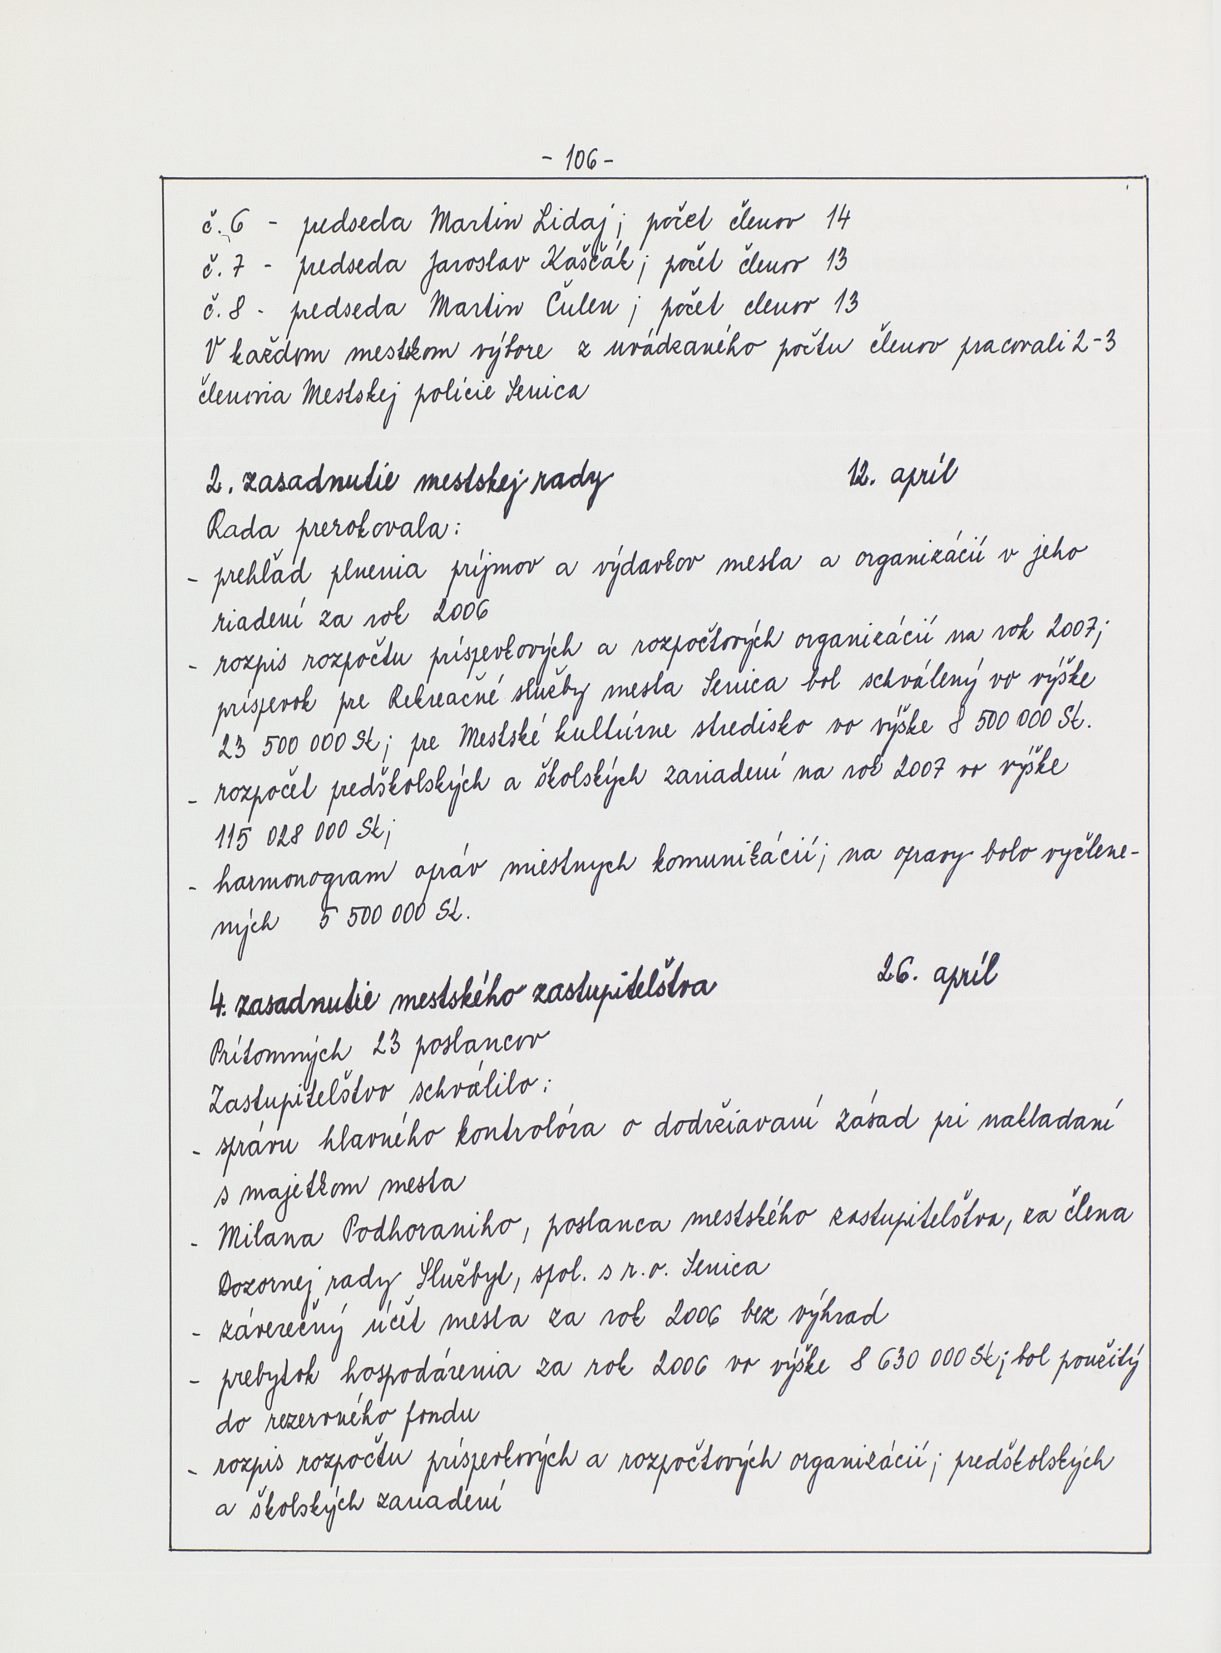 - 106 -
č. 6 - predseda Martin Lidaj; počet členov 14
č. 7 - predseda Jaroslav Kaščák; počet členov 13
č. 8 - predseda Martin Čulen; počet clenov 13
V každom mestskom výbore z uvádzaného počtu členov pracovali 2-3
členovia Mestskej polície Senica
2. zasadnutie mestskej rady 12. apríl
Rada prerokovala:
- prehľad plnenia príjmov a výdavkov mesta a organizácií v jeho
riadení za rok 2006
- rozpis rozpočtu príspevkových a rozpočtových organizácií na rok 2007;
príspevok pre Rekreačné služby mesta Senica bol schválený vo výške
23 500 000 Sk; pre Mestské kultúrne stredisko vo výške 8 500 000 Sk.
- rozpočet predškolských a školských zariadení na rok 2007 vo výške
115 028 000 Sk;
- harmonogram opráv miestnych komunikácií; na opravy bolo vyčlene-
ných 5 500 000 Sk.
4. zasadnutie mestského zastupiteľštva 26. apríl
Prítomných 23 poslancov
Zastupiteľštvo schválilo:
- správu hlavného kontrolóra o dodržiavaní zásad pri nakladaní
s majetkom mesta
- Milana Podhoraniho, poslanca mestského zastupiteľštva, za člena
Dozornej rady Službyt, spol. s r.o. Senica
- záverečný účet mesta za rok 2006 bez výhrad
- prebytok hospodárenia za rok 2006 vo výške 8 630 000 Sk; bol použitý
do rezervného fondu
- rozpis rozpočtu príspevkových a rozpočtových organizácií; predškolských
a školských zariadení